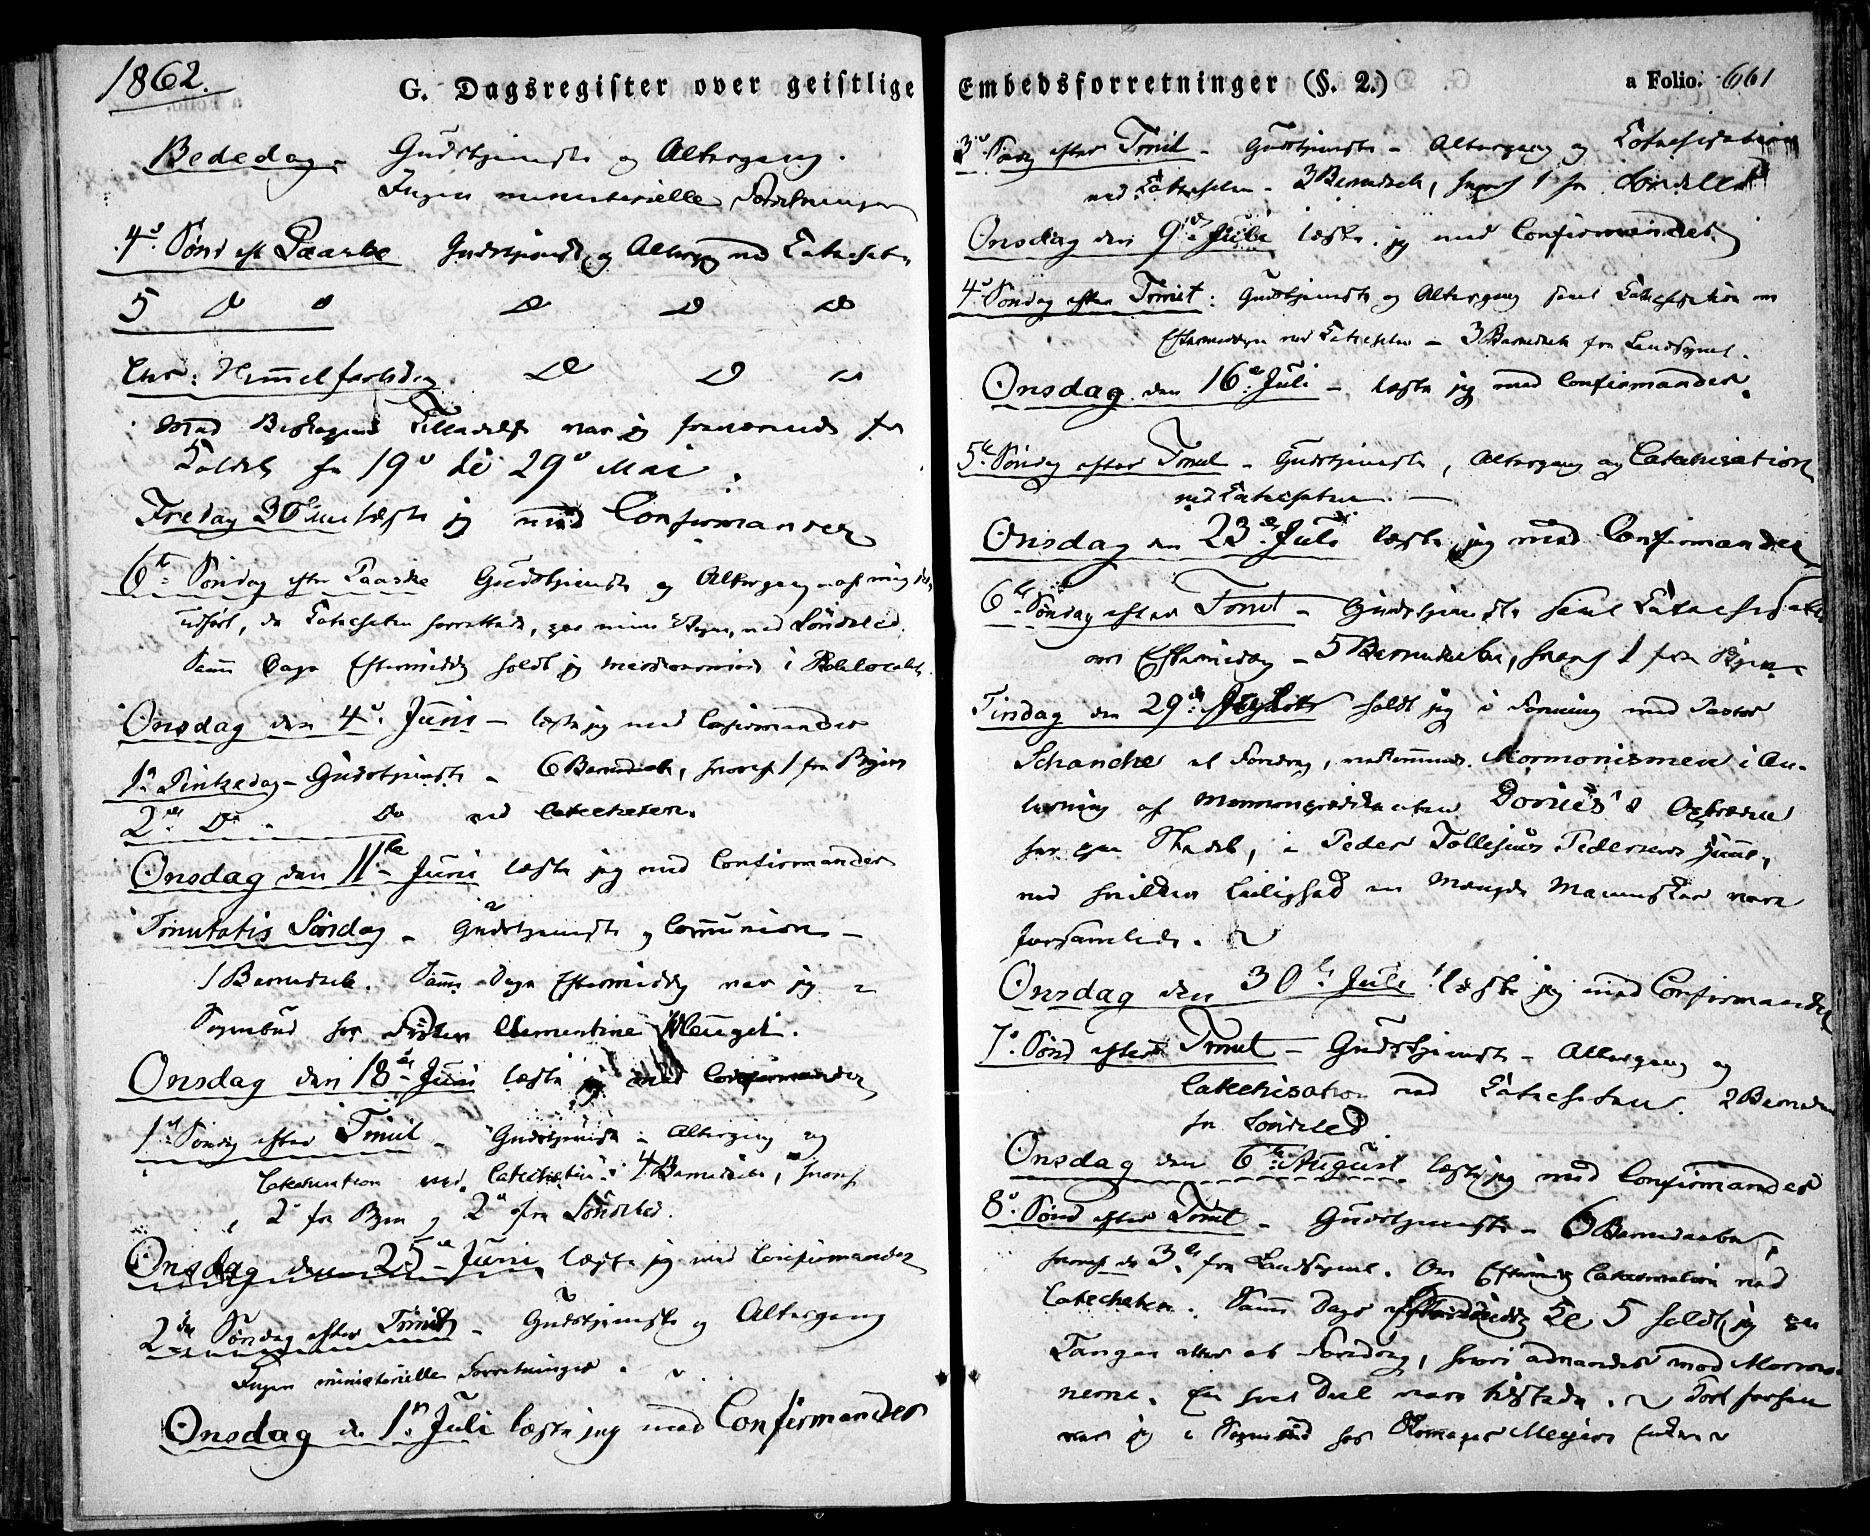 1862.
G. Dagsregister over geistlige
Bededag - Gudstjeneste og Altergang.
Ingen ministerielle Forretninger
4de Sønd eft Paaske Gudstjeneste og Alterg ved Katecheten
5 Do Do Do Do Do
Chr: Himmelfartsdag Do Do
Med Biskopens Tilladelse var jeg fraværende fra
Kaldet fra 19de til 29de Mai.
Fredag 30te læste jeg med Confirmander
6te Søndag efter Paaske Gudstjeneste og Altergang - af mig
udført, da Katecheten forrettede, paa mine Vegne, ved Søndeled.
Samme Dags Eftermiddag holdt jeg i
Onsdag den 4de Juni - læste jeg med Confirmander
1ste Pintsedag - Gudstjeneste - 6 Barnedaab, hvoraf 1 fra Byen
2den Do. Do ved Catecheten.
Onsdag den 11te Juni læste jeg med Confirmander
Trinitatis Søndag - Gudstjeneste og Communion -
1 Barnedaab. Samme Dags Eftermiddag var jeg i
Sognebud hos Clementine
Onsdag den 18de Juni læste jeg med Confirmander
1ste Søndag efter Trinit - Gudstjeneste - Altergang og
Catechisation ved Catecheten. 4 Barnedaab, hvoraf
2 fra Byen og 2 fra Søndeled.
Onsdag den 25de Juni læste jeg med Confirmander
2den Søndag efter Trinit - Gudstjeneste og Altergang
Ingen ministerielle Forretninger.
Onsdag de 1ste Juli læste jeg med Confirmander
Embedsforretninger (§. 2.) a Folio. 661
3de Sdag efter Trinit - Gudstjeneste - Altergang og Katechisation
ved Katecheten - 3 Barnedaab, hvoraf 1 fra Søndeled
Onsdag den 9de Juli læste jeg med Confirmander
4de Søndag efter Trinit: Gudstjeneste og Altergang samt Katechisation om
Eftermiddagen ved Katecheten - 3 Barnedaab fra Landsognet.
Onsdag den 16de Juli - læste jeg med Confirmander.
5te Søndag efter Trinit - Gudstjeneste, Altergang og Catechisation
ved Katecheten.
Onsdag den 23de Juli læste jeg med Confirmander
6te Søndag efter Trinit - Gudstjeneste samt Katechisation
om Eftermiddag - 5 Barnedaab, hvoraf 1 fra Byen
Tirsdag den 29de holdt jeg i Forening med Pastor
Schanche et Foredrag, vedkommende Mormonismen i An-
ledning af Mormonprædikanten Optræden
her paa Stedet, i Peder Tollefsens Pedersens Huus,
ved hvilken Leilighed en Mængde Mennesker vare
forsamlede.
Onsdag den 30te Juli læste jeg med Confirmander
7de Sønd efter Trinit - Gudstjeneste - Altergang og
Catechisation ved Katecheten. 2 Barnedaab
fra Søndeled.
Onsdag den 6te August læste jeg med Confirmander
8de Sønd efter Trinit - Gudstjeneste - 6 Barnedaab
hvoraf de 3de fra Landsognet. Om Eftermiddag Catechisation ved
Catecheten. Samme Dags Eftermiddag Kl 5 holdt jeg paa
Tangen atter et Foredrag, hvori advaredes mod Mormo-
nerne. En heel Deel vare tilstede.
var jeg i Sognebud hos Meyers